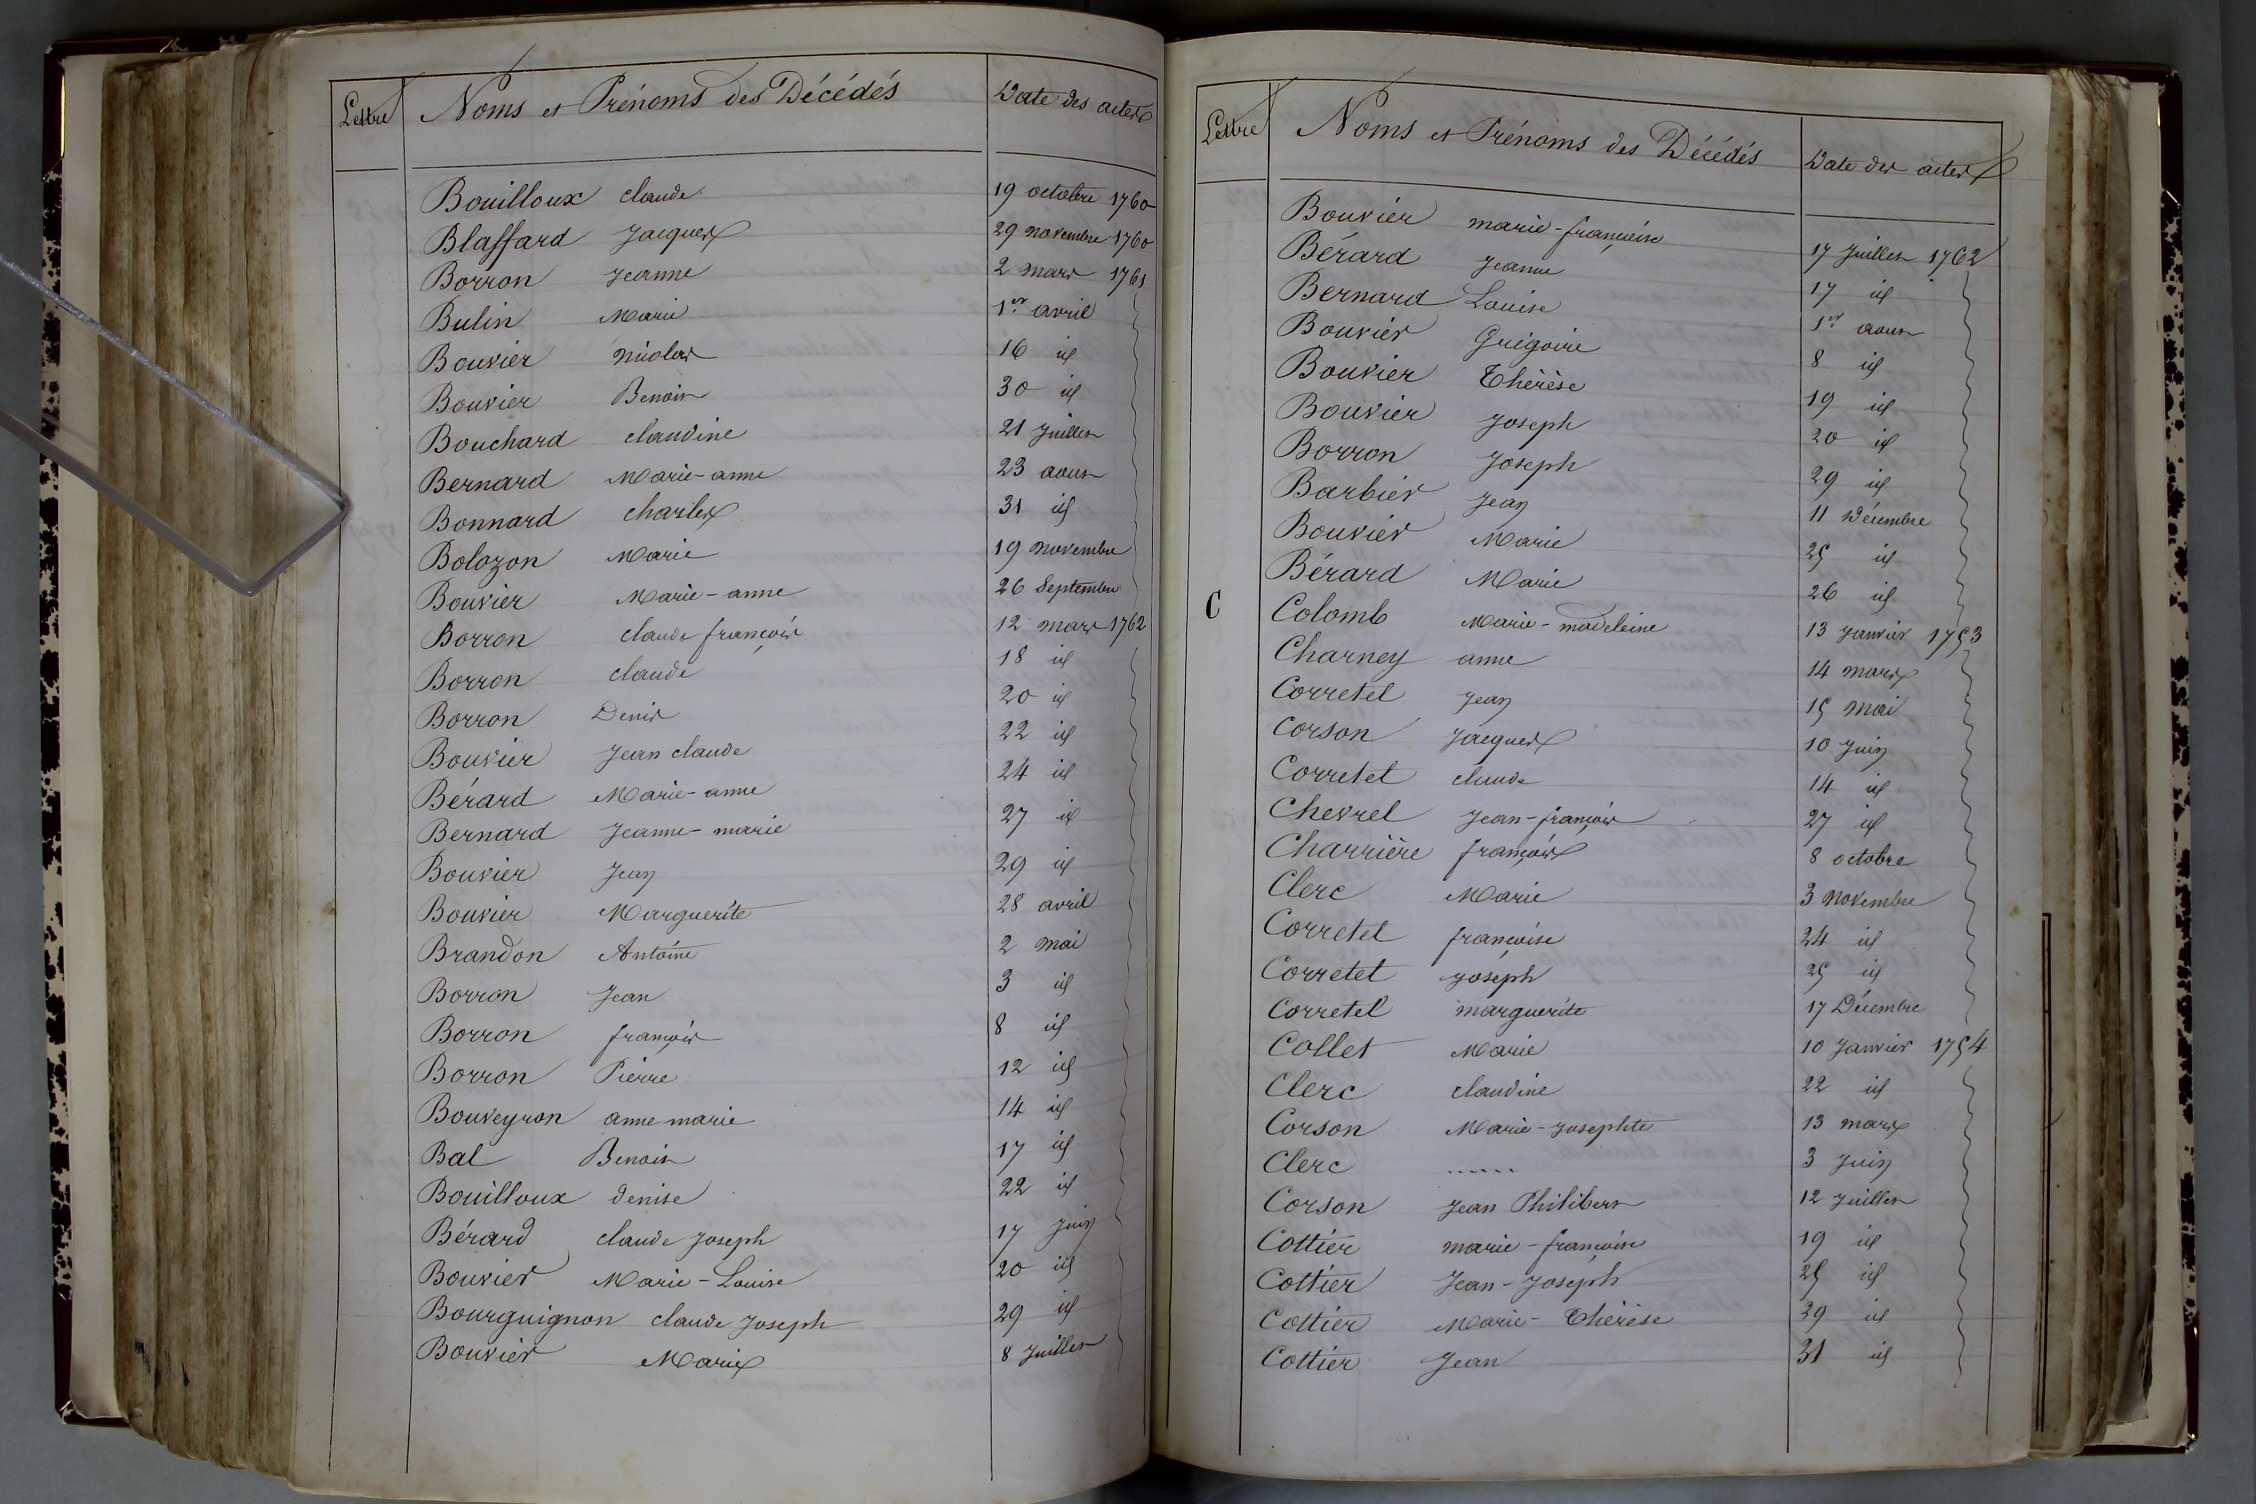 Lettre Noms et Prénoms des Décédés Date des actes
Bouilloux claude 19 octobre 1760
Blaffard Jacques 29 novembre 1760
Borron Jeanne 2 mars 1761
Bulin Marie 1er avril
Bouvier nicolas 16 id
Bouvier Benoit 30 id
Bouchard claudine 21 Juillet
Bernard Marie-anne 23 aout
Bonnard charles 31 id
Bolozon Marie 19 novembre
Bouvier Marie-anne 26 Septembre
Borron claude françois 12 mars 1762
Borron claude 18 id
Borron Denis 20 id
Bouvier Jean claude 22 id
Bérard Marie-anne 24 id
Bernard Jeanne-marie 27 id
Bouvier Jean 29 id
Bouvier Marguerite 28 avril
Brandon Antoine 2 mai
Borron Jean 3 id
Borron françois 8 id
Borron Pierre 12 id
Bouveyron anne marie 14 id
Bal Benoit 17 id
Bouilloux denise 22 id
Bérard claude Joseph 17 Juin
Bouvier Marie-Louise 20 id
Bourguignon claude Joseph 29 id
Bouvier Marie 8 Juillet
Lettre Noms et Prénoms des Décédés Date des actes
Bouvier marie-françoise 17 Juillet 1762
Bérard Jeanne 17 id
Bernard Louise 1er aout
Bouvier Grégoire 8 id
Bouvier Thérèse 19 id
Bouvier Joseph 20 id
Borron Joseph 29 id
Barbier Jean 11 Décembre
Bouvier Marie 25 id
Bérard Marie 26 id
C Colomb Marie-madeleine 13 Janvier 1753
Charney anne 14 mars
Corretel Jean 15 mai
Corson Jacques 10 Juin
Corretet claude 14 id
Chevrel Jean-françois 27 id
Charrière françois 8 octobre
Clerc Marie 3 novembre
Corretet françoise 24 id
Corretet Joseph 25 id
Corretel marguerite 17 Décembre
Collet Marie 10 Janvier 1754
Clerc claudine 22 id
Corson Marie-Josephte 13 mars
Clerc ...... 3 Juin
Corson Jean Philibert 12 Juillet
Cottier marie-françoise 19 id
Cottier Jean-Joseph 25 id
Cottier Marie-Thérèse 29 id
Cottier Jean 31 id